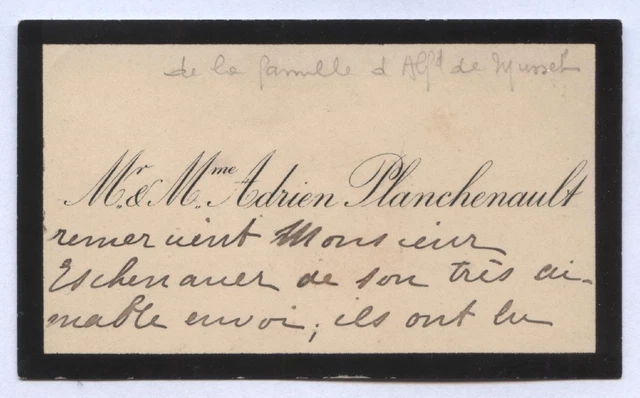 de la famille d'Alf^d de Musset
M^r. & M^me. Adrien Planchenault
remercient Monsieur
Eschenauer de son très ai-
mable envoi, ils ont lu